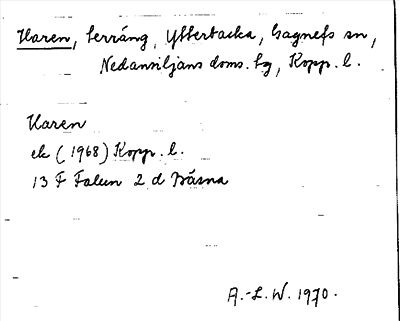 Haren, terräng, Ytterbacka, Gagnefs sn,
Nedansiljans doms. hg, Kopp. l.
Haren
ek (1968) Kopp. l.
13 F Falun 2 d Bäsna
A.-L.W. 1970.